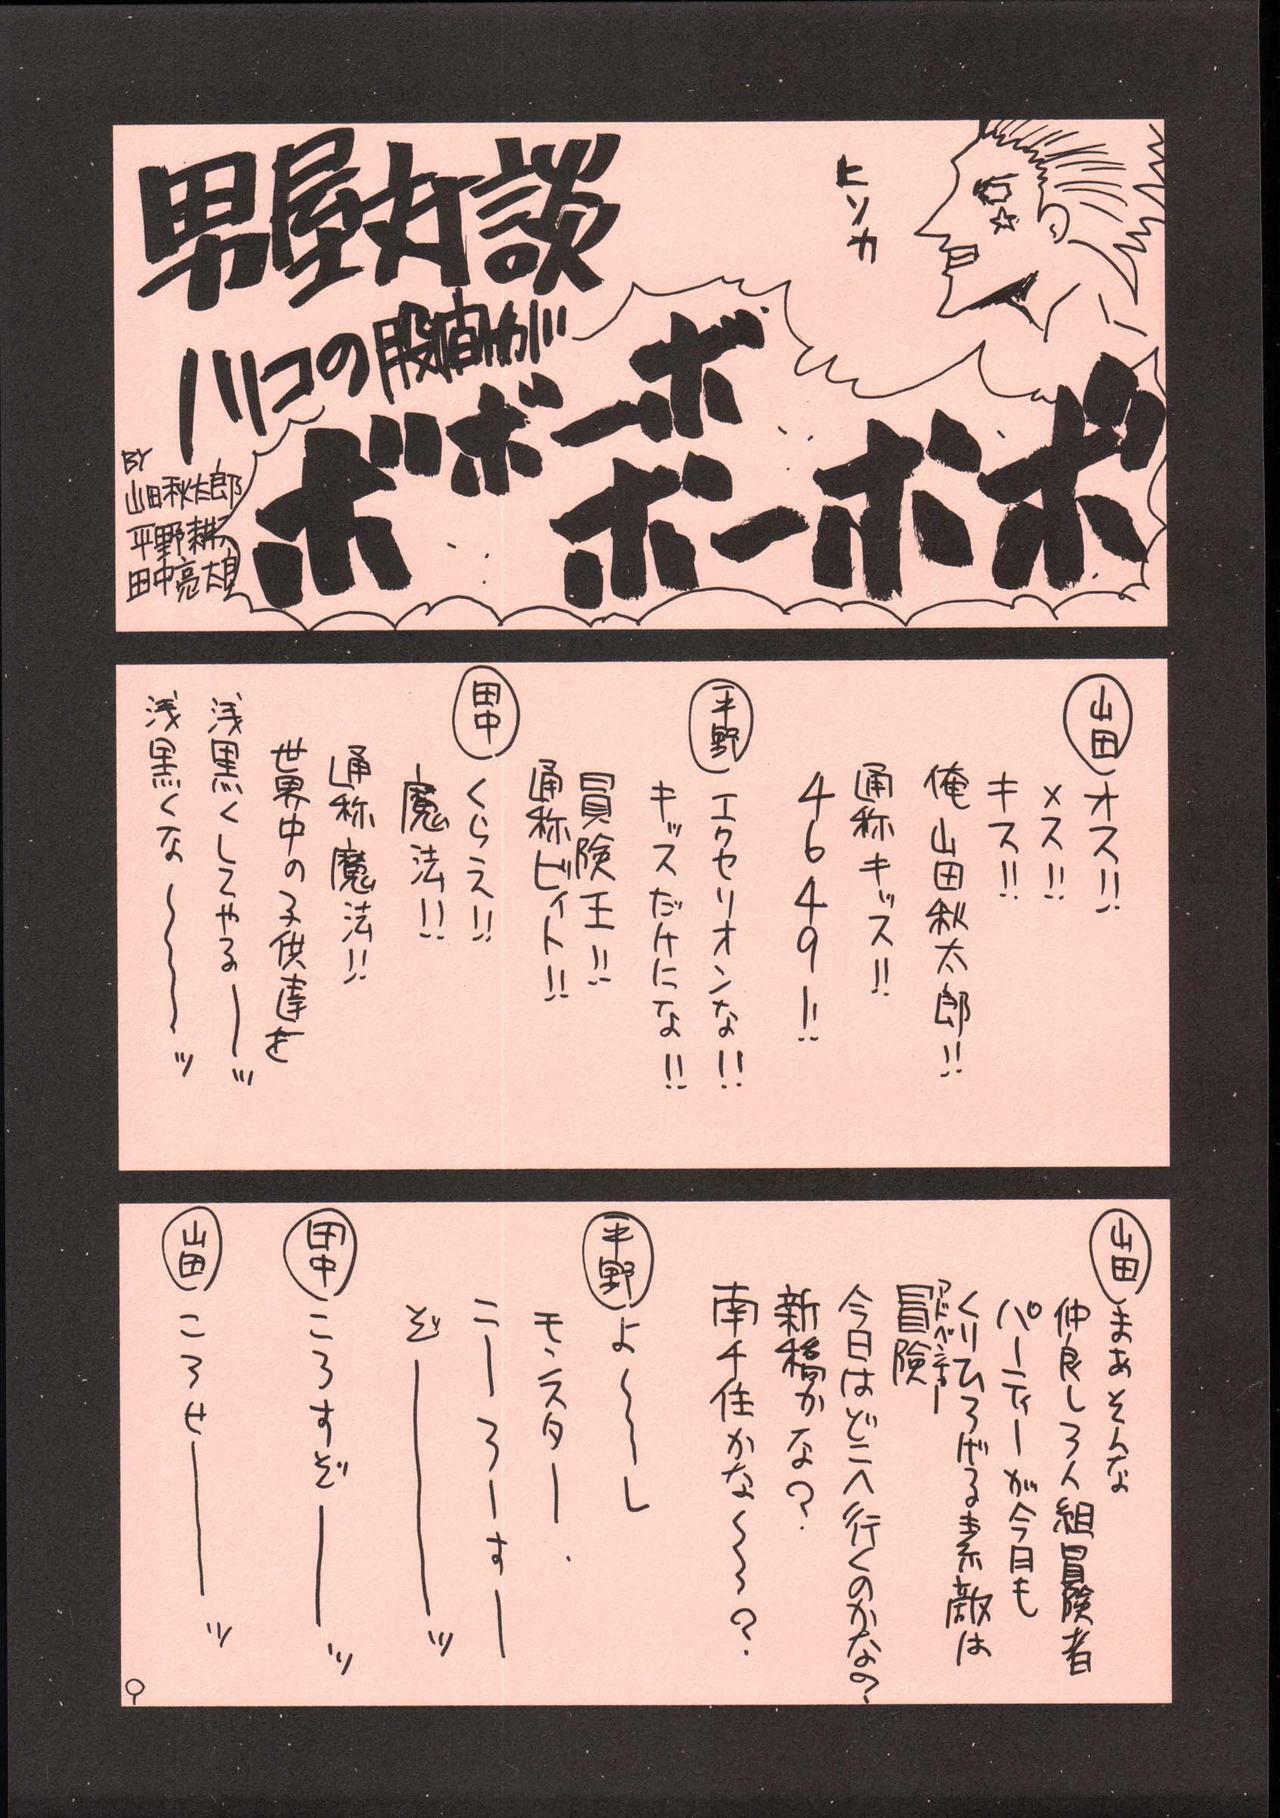 男屋対談
ヒソカ
ソコの股間が
ボボボーボ
ボーボボ
BY
山田秋太郎
平野耕太
田中亮太郎
山田 オス!!
メス!!
キス!!
俺山田秋太郎!!
通称キッス!!
4649ー!!
平野 エクセリオンな!!
キッスだけにな!!
冒険王!!
通称ビィト!!
田中 くらえ!!
魔法!!
通称魔法!!
世界中の子供達を
浅黒くしてやるーーッ
浅黒くな〜〜〜ッ
山田 まあそんな
仲良し3人組冒険者
パーティーが今日も
くりひろげる素敵は
冒険
アドベンチャー
今日はどこへ行くのかな?
新橋かな?
南千住かな〜〜?
平野 よ〜〜し
モンスター
こーろーすー
ぞーーーッ
田中 ころすぞーーーッ
山田 ころせーーーッ
9